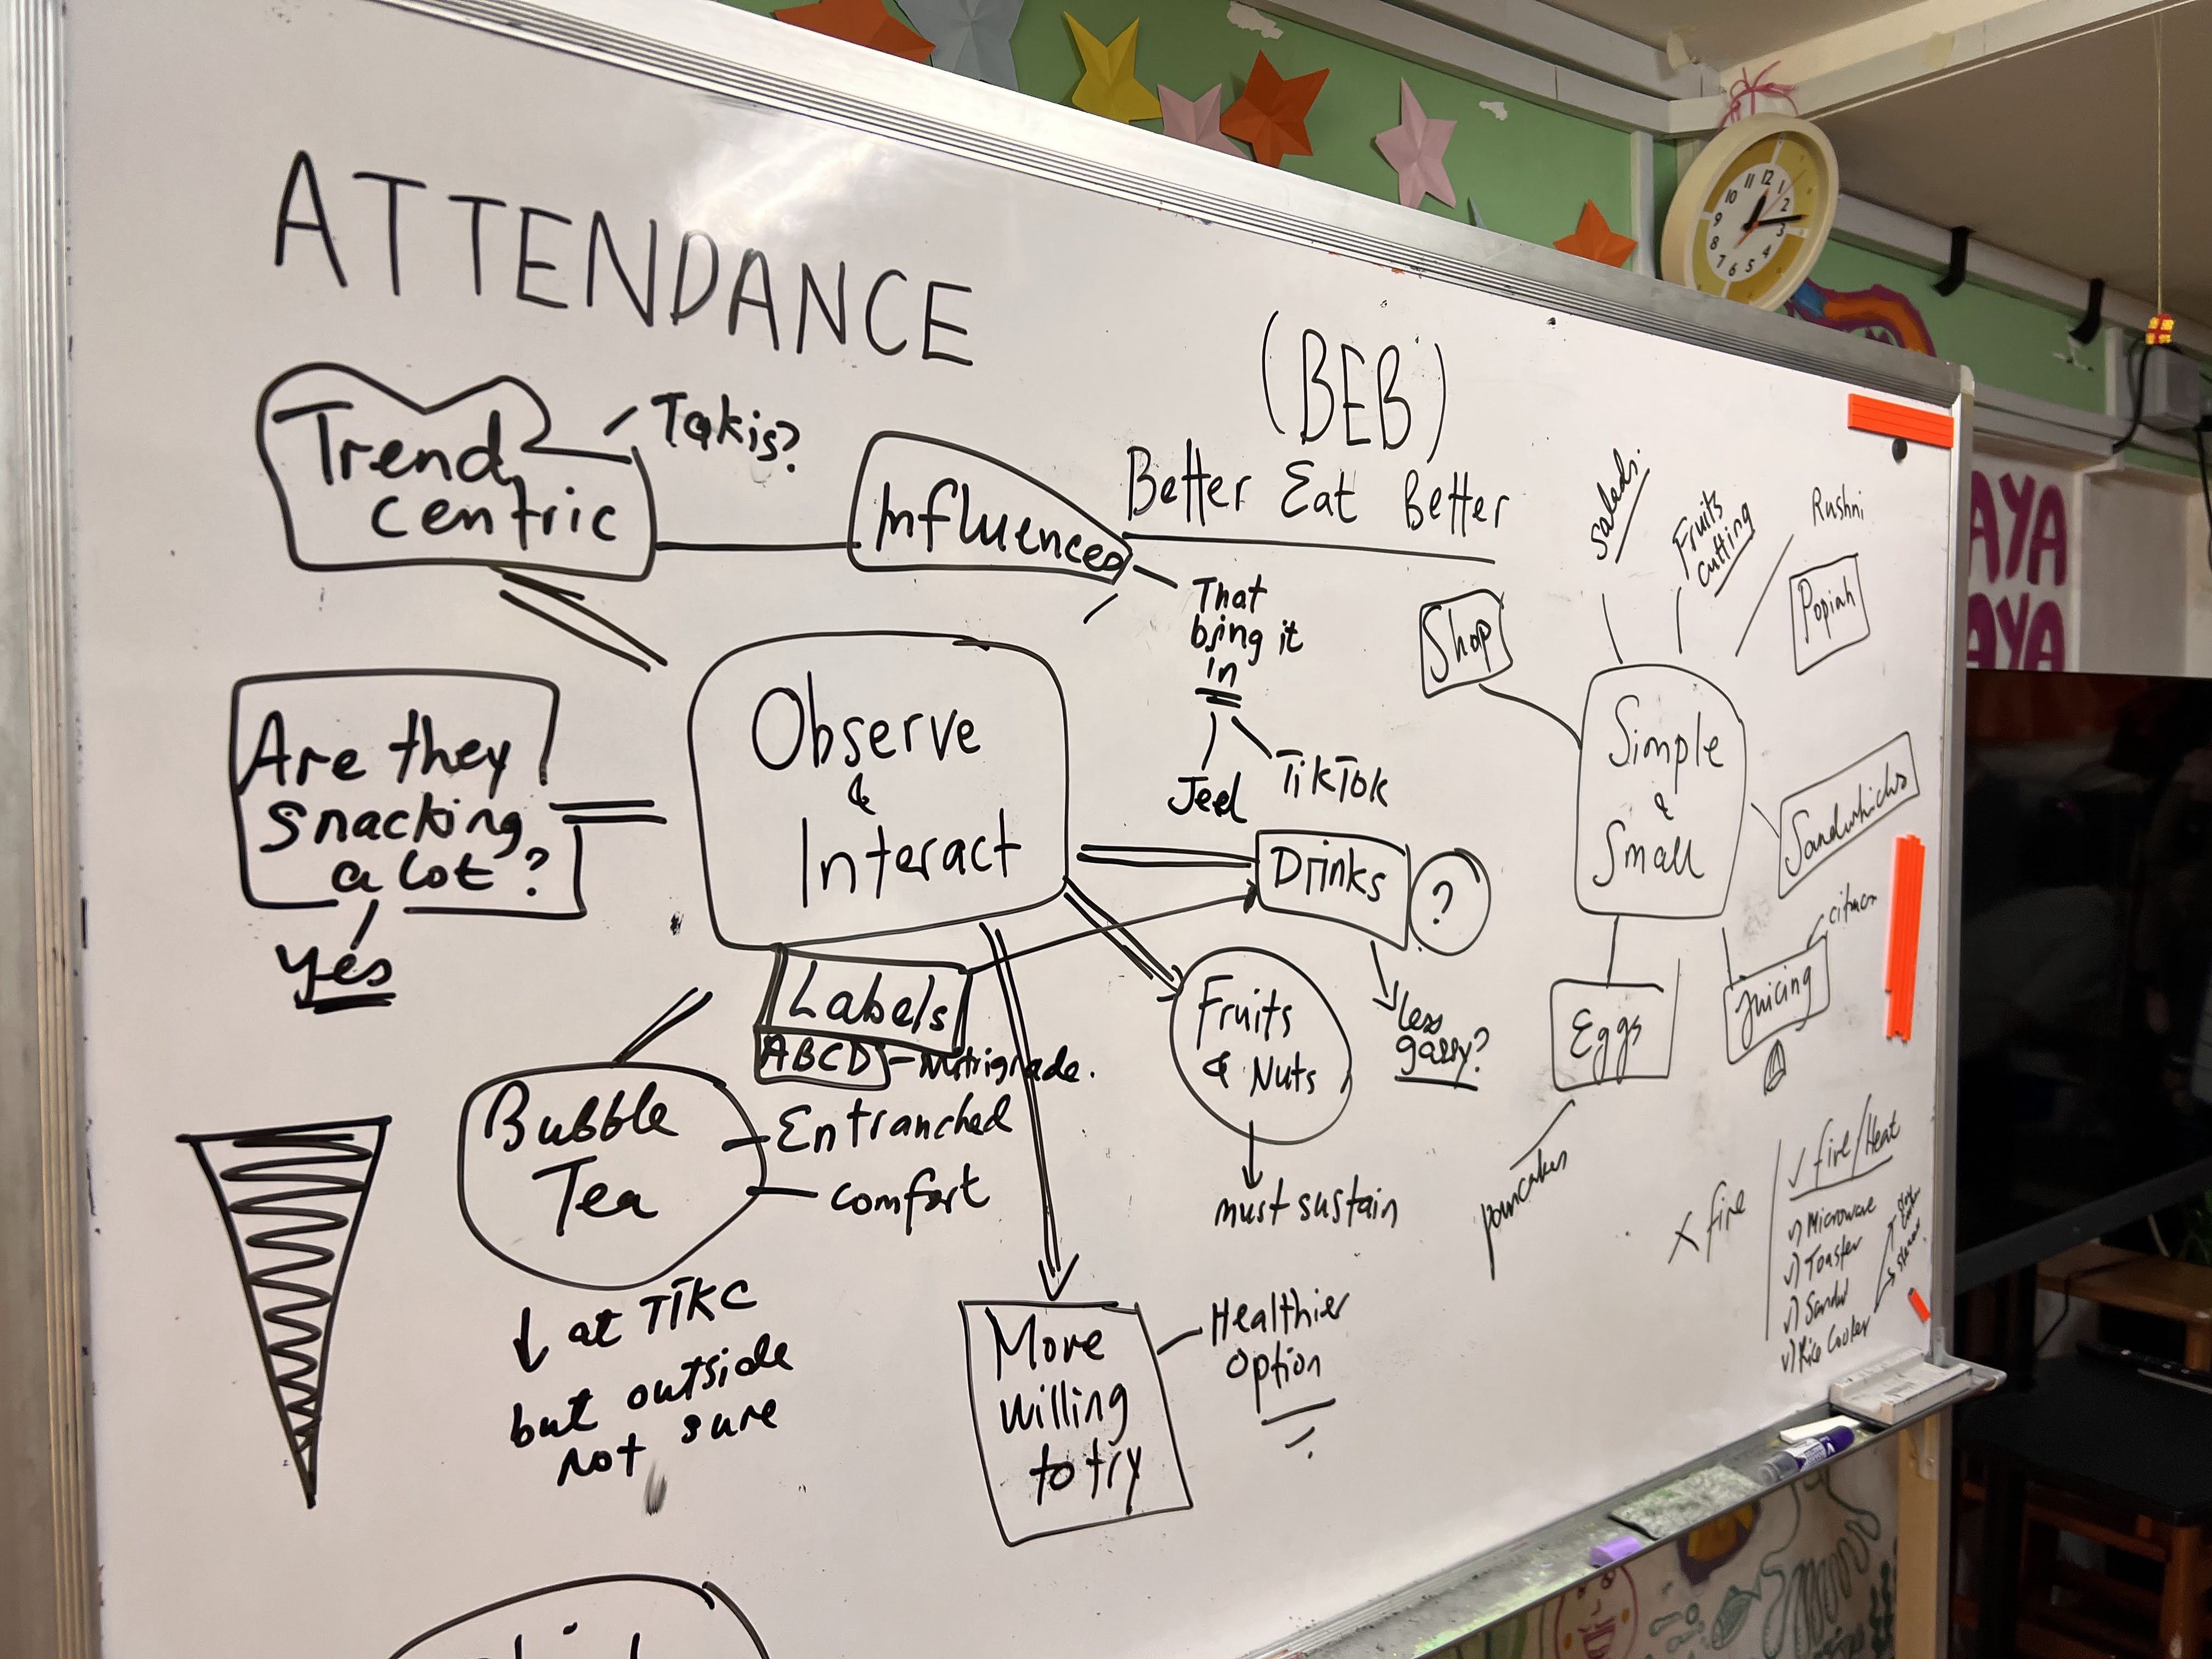 ATTENDANCE
(BEB)
Better Eat Better
Trend
Centric
Takis?
Influences
That
bring it
in
Jeel
TikTok
Are they
snacking
a lot?
yes
Observe
&
Interact
Labels
ABCD - Nutrigrade.
Drinks
?
less
gassy?
Fruits
& Nuts
must sustain
Bubble
Tea
Entranched
comfort
at TIKC
but outside
not sure
More
willing
to try
Healthier
option
Shop
salads.
Fruits
cutting
Rushni
Popiah
Simple
&
Small
Sandwhichs
Juicing
Eggs
pancakes
X fire
✓ fire/Heat
Microwave
Toaster
Rice Cooker
12
1
2
3
4
5
6
7
8
9
10
11
AYA
AYA